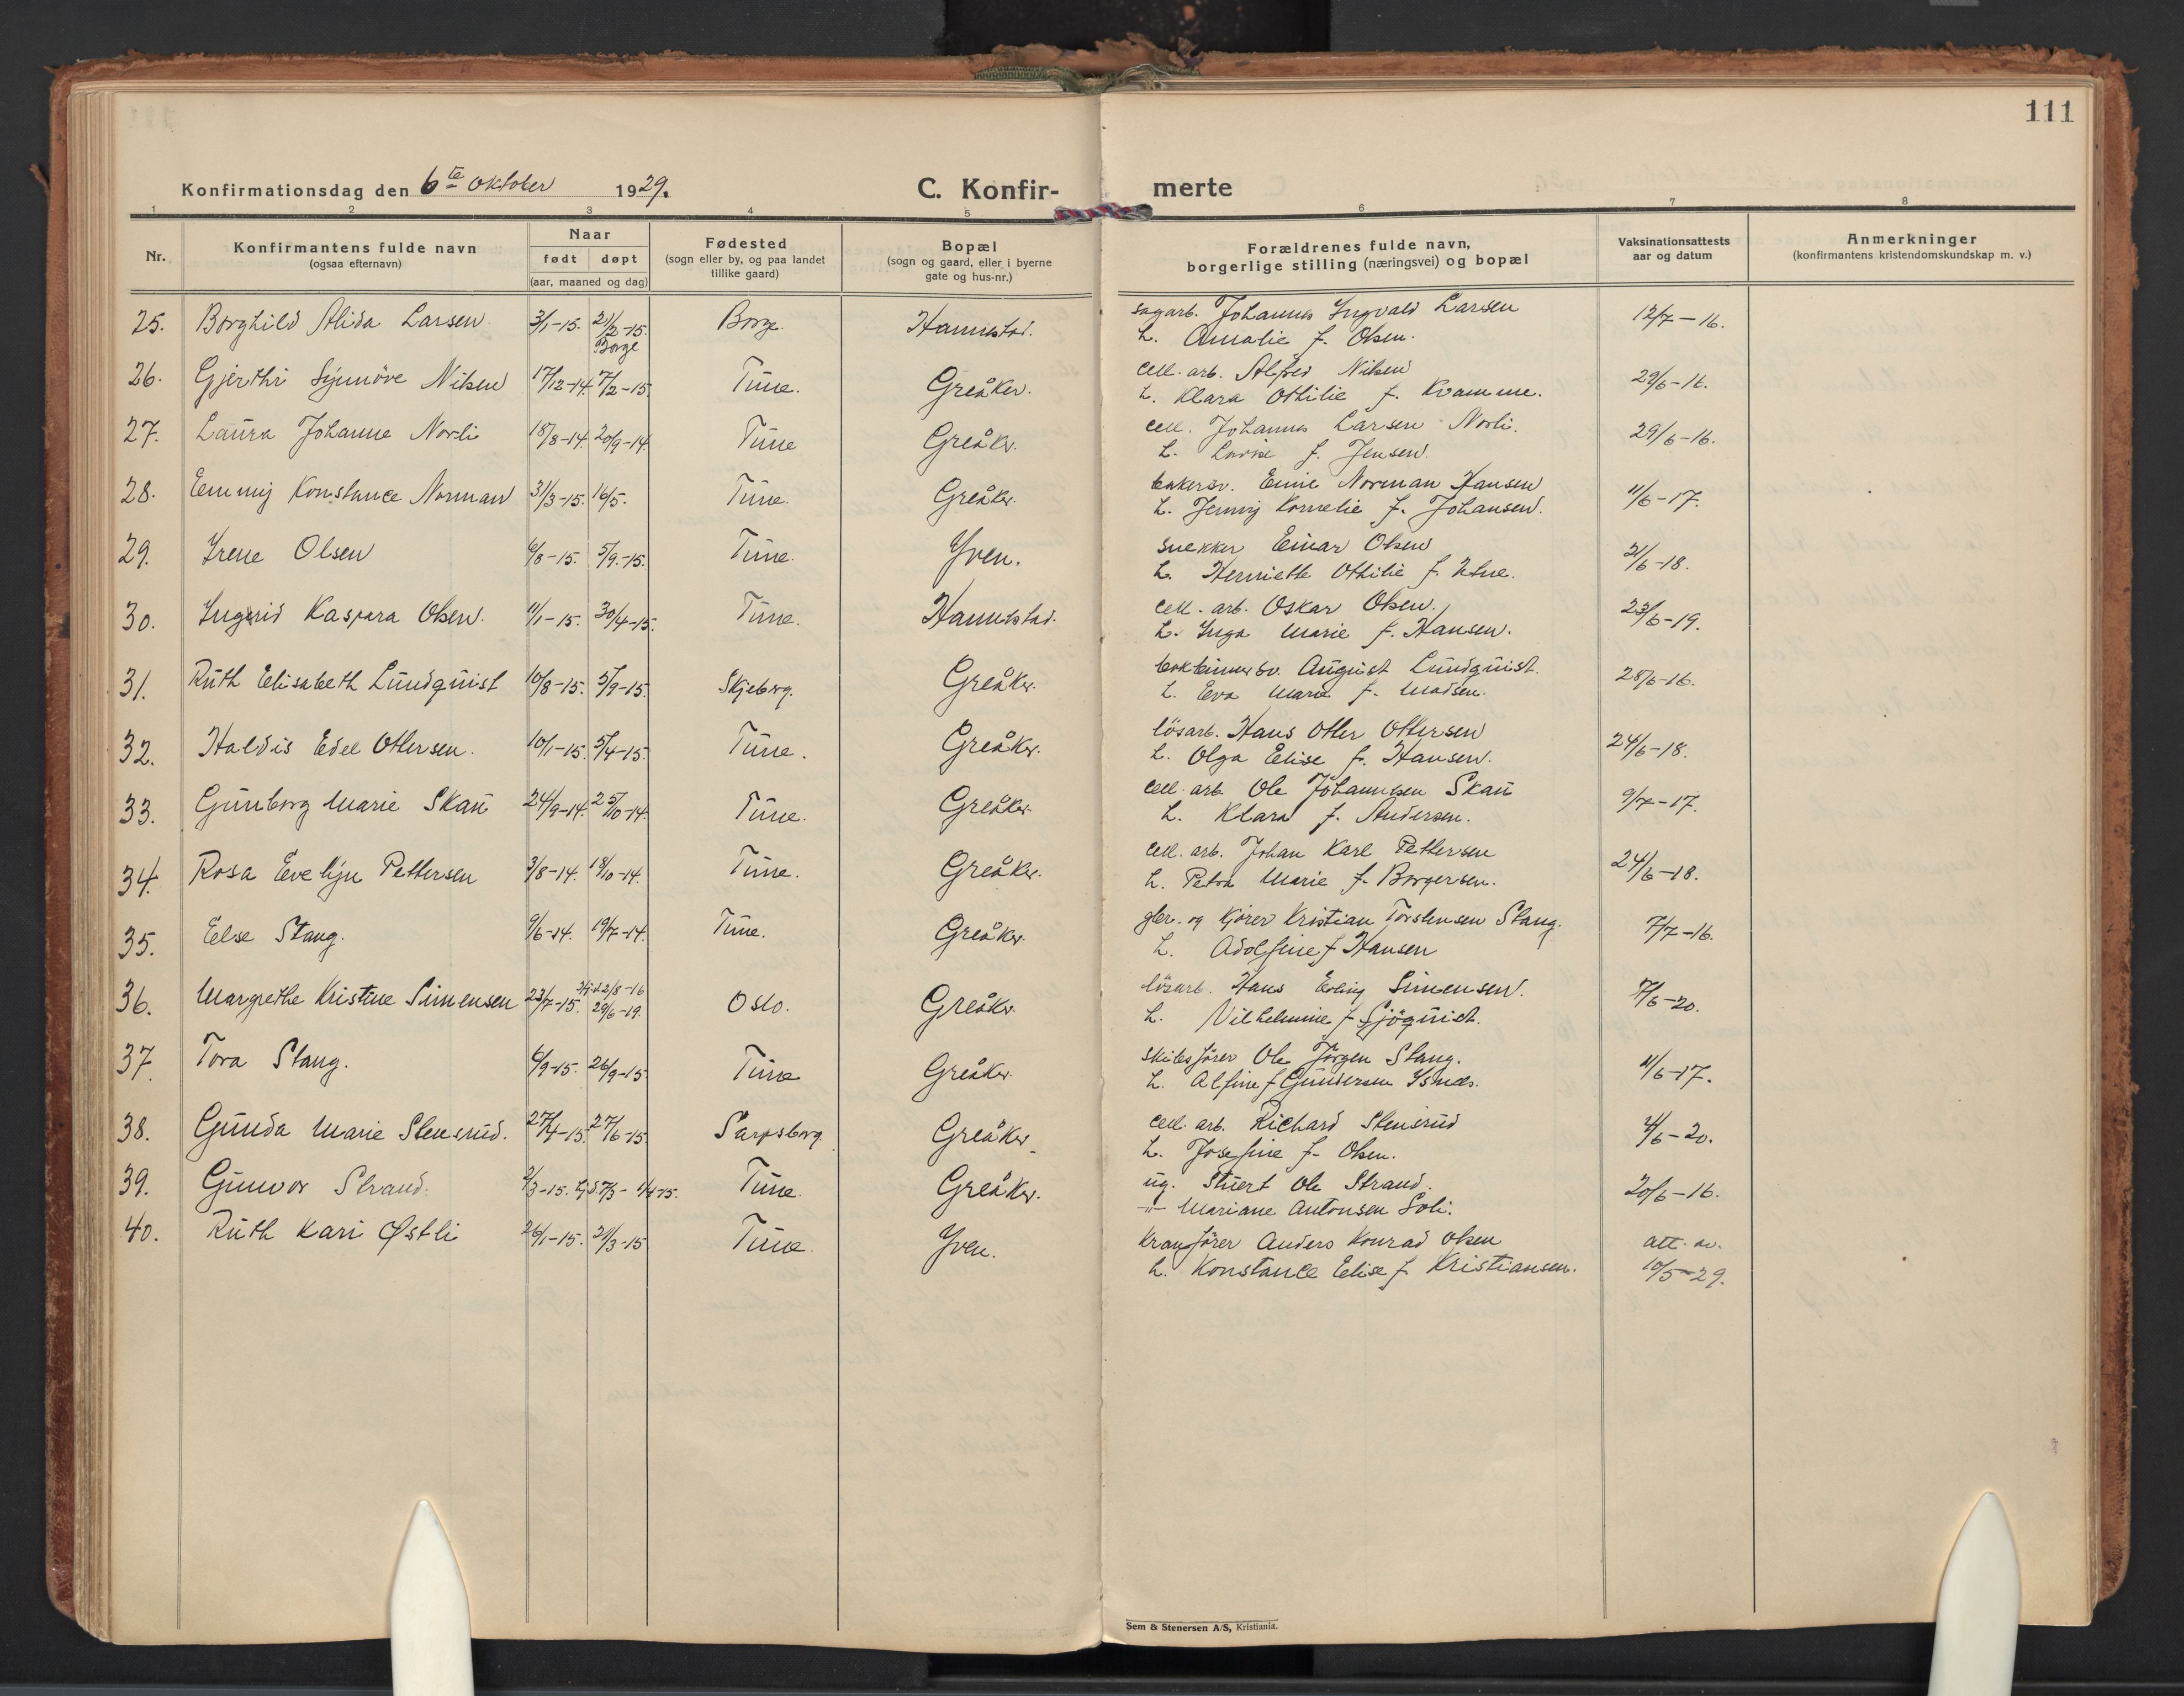 111
Konfirmationsdag den 6te Oktober 1929.
C. Konfir- merte
1 2 3 4 5 6 7 8
Nr.
Konfirmantens fulde navn
(ogsaa efternavn)
Naar
født døpt
(aar, maaned og dag)
Fødested
(sogn eller by, og paa landet
tillike gaard)
Bopæl
(sogn og gaard, eller i byerne
gate og hus-nr.)
Forældrenes fulde navn,
borgerlige stilling (næringsvei) og bopæl
Vaksinationsattests
aar og datum
Anmerkninger
(konfirmantens kristendomskundskap m. v.)
25. Borghild Alida Larsen 3/1-15. 21/2-15. Borge Borge. Hannestad. sagarb. Johannes Ingvald Larsen 12/7-16.
h. Amalie f. Olsen.
26. Gjerthi Synnöve Nilsen 17/12-14. 7/2-15. Tune. Greåker. cell. arb. Alfred Nilsen 29/6-16.
h. Klara Othilie f. Kvamme.
27. Laura Johanne Norli 18/8-14. 20/9-14. Tune Greåker. cell. Johannes Larsen Norli. 29/6-16.
h. Lovise f. Jensen.
28. Emmy Konstance Norman 31/3-15. 16/5. Tune. Greåker. bakersv. Norman Hansen 11/6-17.
h. Jenny Kornelie f. Johansen.
29. Irene Olsen 6/8-15. 5/9-15. Tune. Yven. snekker Einar Olsen 21/6-18.
h. Henriette Othilie f.
30. Ingrid Kaspara Olsen. 11/1-15. 30/4-15. Tune. Hannestad. cell. arb. Oskar Olsen. 23/6-19.
h. Inga Marie f. Hansen.
31. Ruth Elisabeth Lundquist 10/8-15. 5/9-15. Skjeberg. Greåker. bokbindersv. August Lundquist. 28/6-16.
h. Eva Marie f. Madsen.
32. Haldis Edel Ottersen. 10/1-15. 5/4-15. Tune. Greåker. lösarb. Hans Otter Ottersen 24/6-18.
h. Olga Elise f. Hansen.
33. Gunborg Marie Skau 24/9-14. 25/10-14. Tune. Greåker. cell. arb. Ole Johannesen Skau 9/7-17.
h. Klara f. Andersen.
34. Rosa Evelyn Pettersen 3/8-14. 18/10-14. Tune. Greåker. cell. arb. Johan Karl Pettersen 24/6-18.
h. Petra Marie f. Borgersen.
35. Else Stang. 9/6-14. 19/7-14. Tune. Greåker. gbr. og kjörer Kristian Torstensen Stang. 7/7-16.
h. Adolfine f Hansen
36. Margrethe Kristine Simensen 23/7-15. Hj.d. 2/8-16 29/6-19. Oslo. Greåker. lösarb. Hans Erling Simensen. 7/6-20.
h. Vilhelmine f Sjöquist.
37. Tora Stang. 6/9-15. 26/9-15. Tune Greåker. skibsförer Ole Jörgen Stang. 11/6-17.
h. Alfine f Gundersen
38. Gunda Marie Stensrud. 27/4-15. 27/6-15. Sarpsborg. Greåker. cell. arb. Richard Stensrud 4/6-20.
h. Josefine f. Olsen.
39. Gunvor Strand. 2/3-15. Hj.d. 7/3- 4/4-15. Tune. Greåker. ug. Stuert Ole Strand. 20/6-16.
-"- Mariane Antonsen Soli.
40. Ruth Kari Østli 26/1-15. 21/3-15 Tune. Yven. kranförer Anders Konrad Olsen att. av.
h. Konstance Elise f. Kristiansen. 10/5-29.
Sem & Stenersen A/S, Kristiania.